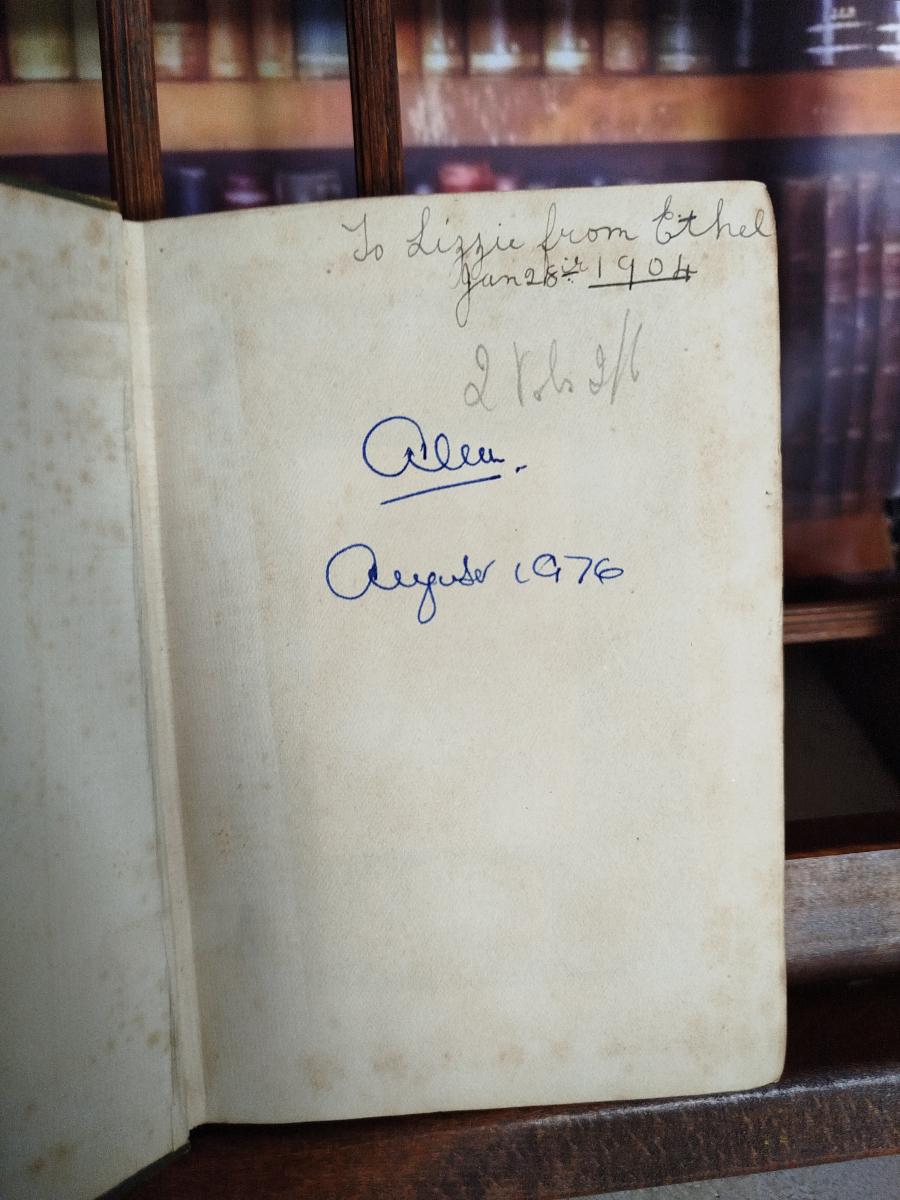 To Lizzie from Ethel
Jan 28th 1904
2 Vols 2/6
August 1976